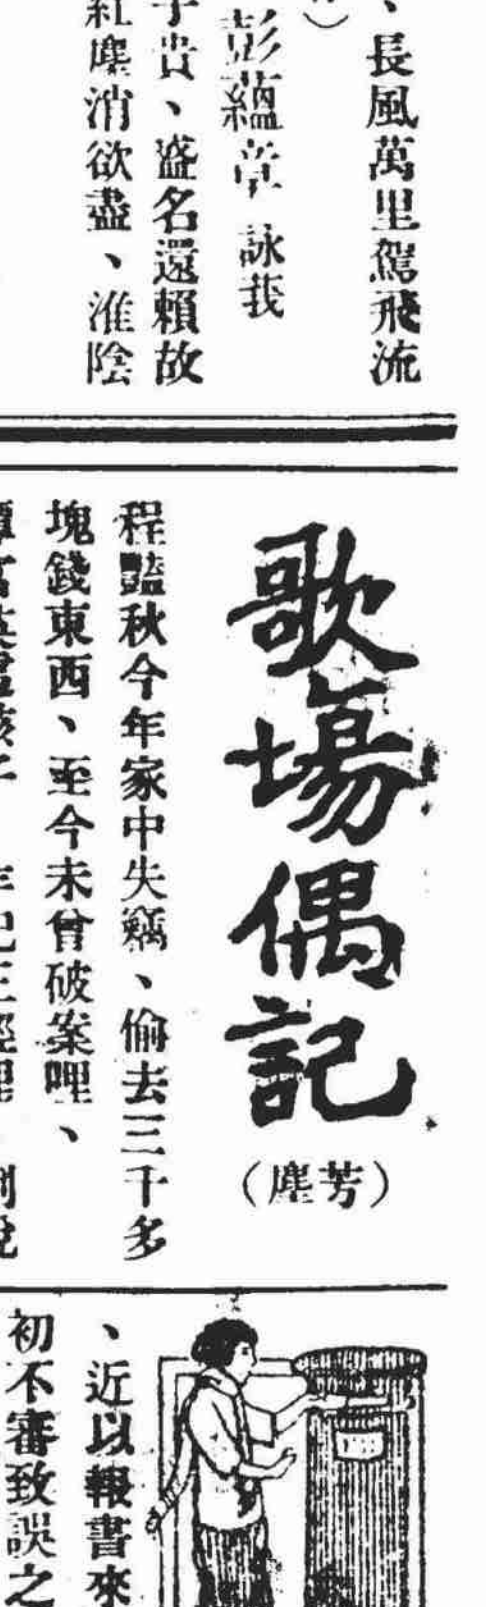 、長風萬里駕飛流
彭蘊章 詠莪
子貴、盛名還賴故
紅塵消欲盡、淮陰
歌場偶記
(塵芳)
程豔秋今年家中失竊、偷去三千多
塊錢東西、至今未曾破案哩、
、近以報書來
初不審致誤之